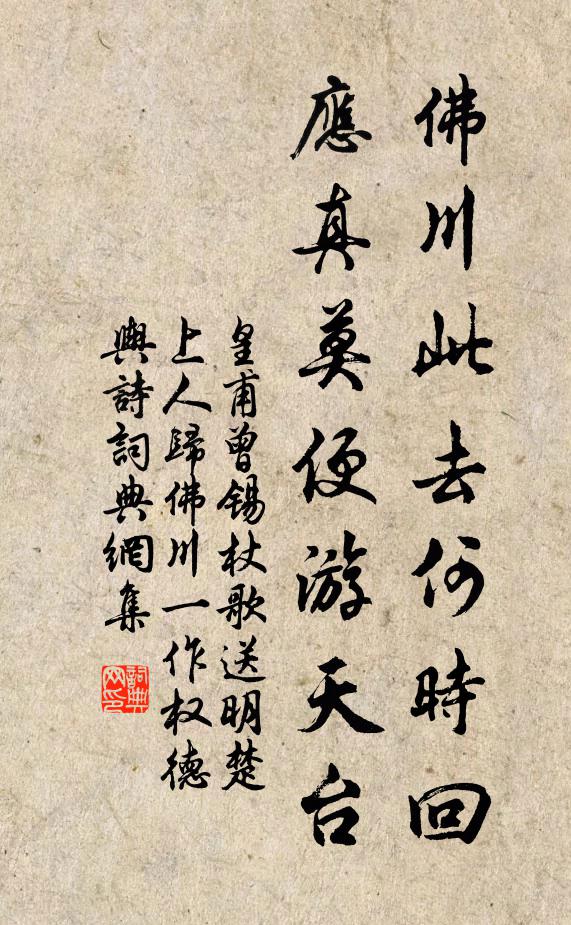 佛川此去何時回
應真莫便游天台
皇甫曾錫杖歌送明楚
上人歸佛川一作权德
輿詩詞典網集
詞典
网印